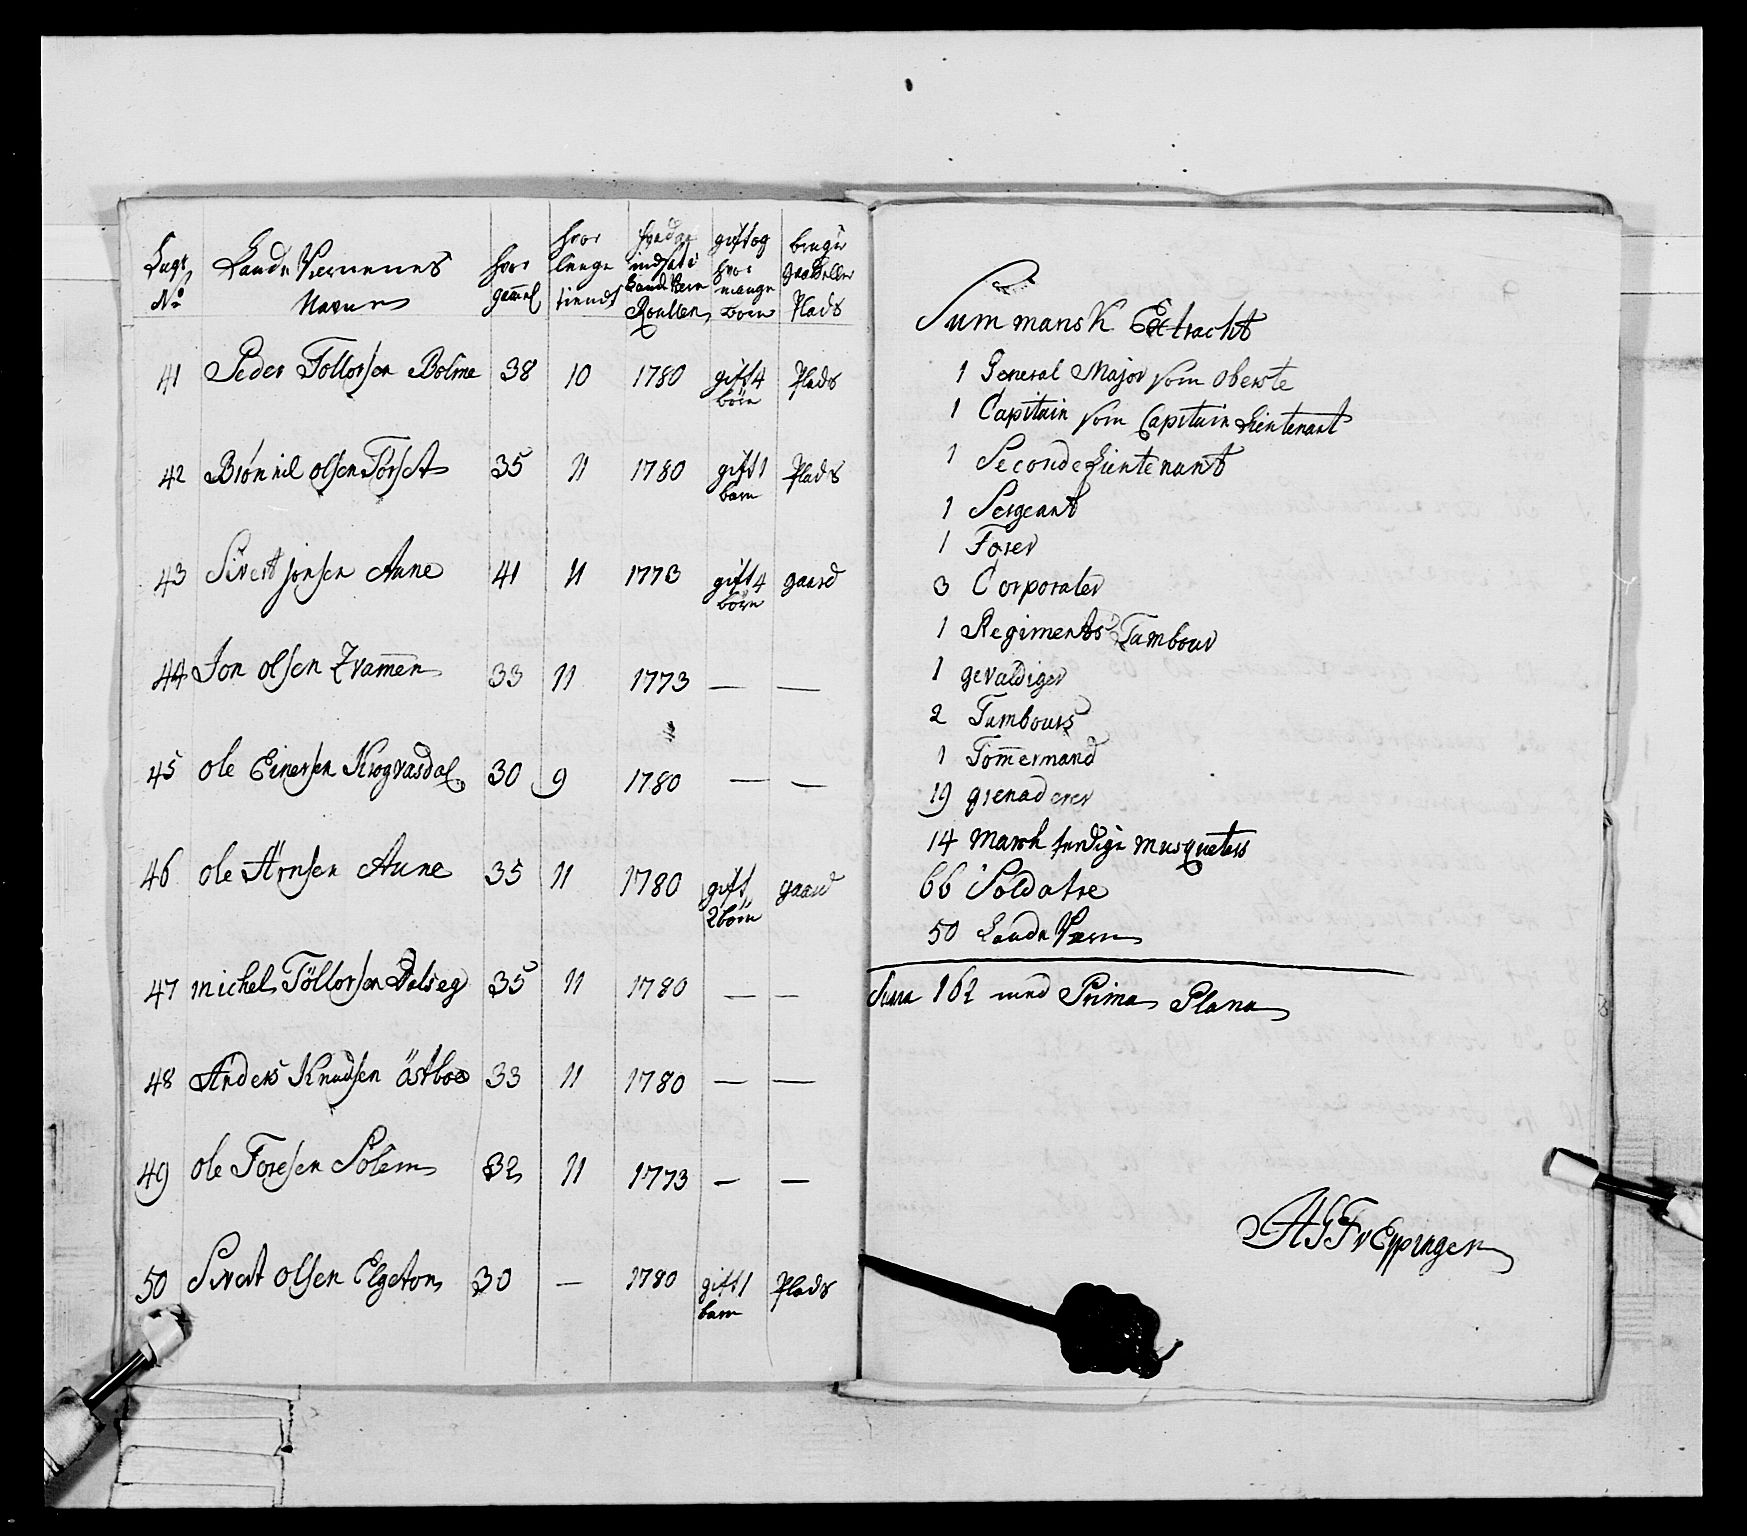 Lægs No | Lande Vernenes Navne | hvor gam̅el | hvor lenge tiendt | indsat i Lande Vern Roullen | gift og hvor mange Børn | bruger Plads
41 Peder Tollorsen Bolme 38 10 1780 gift 4 börn Plads
42 Brönnil olsen Torset 35 11 1780 gift 1 barn Plads
43 Sivert jonsen Aune 41 11 1773 gift 4 börn gaard
44 Jon olsen Kvam̅en 33 11 1773 — —
45 ole Einersen Krogvasdal 30 9 1780 — —
46 ole Arnsen Aune 35 11 1780 gift 2 börn gaard
47 michel Töllorsen Dalseg 35 11 1780 — —
48 Anders Knudsen östboe 33 11 1780 — —
49 ole Toresen Solem 32 11 1773 — —
50 Sivert olsen Elgeton 30 — 1780 gift 1 barn Plads
Summarisk Extracht
1 General Major som oberste
1 Capitain som Capitain Lieutenant
1 Seconde Lieutenant
1 Sergeant
1 Forer
3 Corporaler
1 Regiments Tambour
1 gevaldiger
2 Tambours
1 Töm̅ermand
19 grenaderer
14 Marsh ferdige musqueters
66 Soldatre
50 Lande Værn
Suma 162 med Prima Plana
AGF v Eppingen